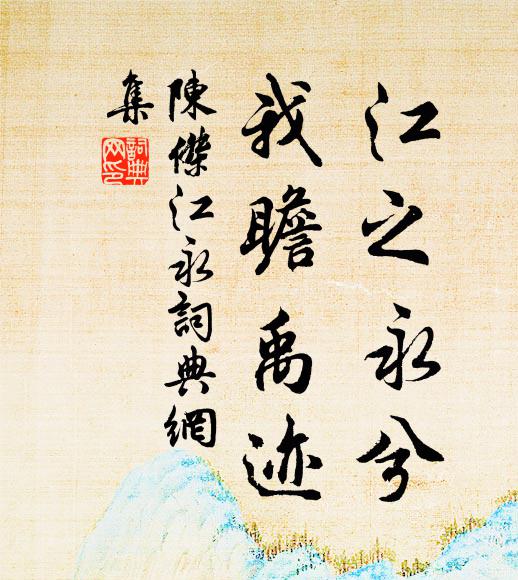 江之永兮
我瞻禹迹
陳傑江永詞典網
集
詞典网印